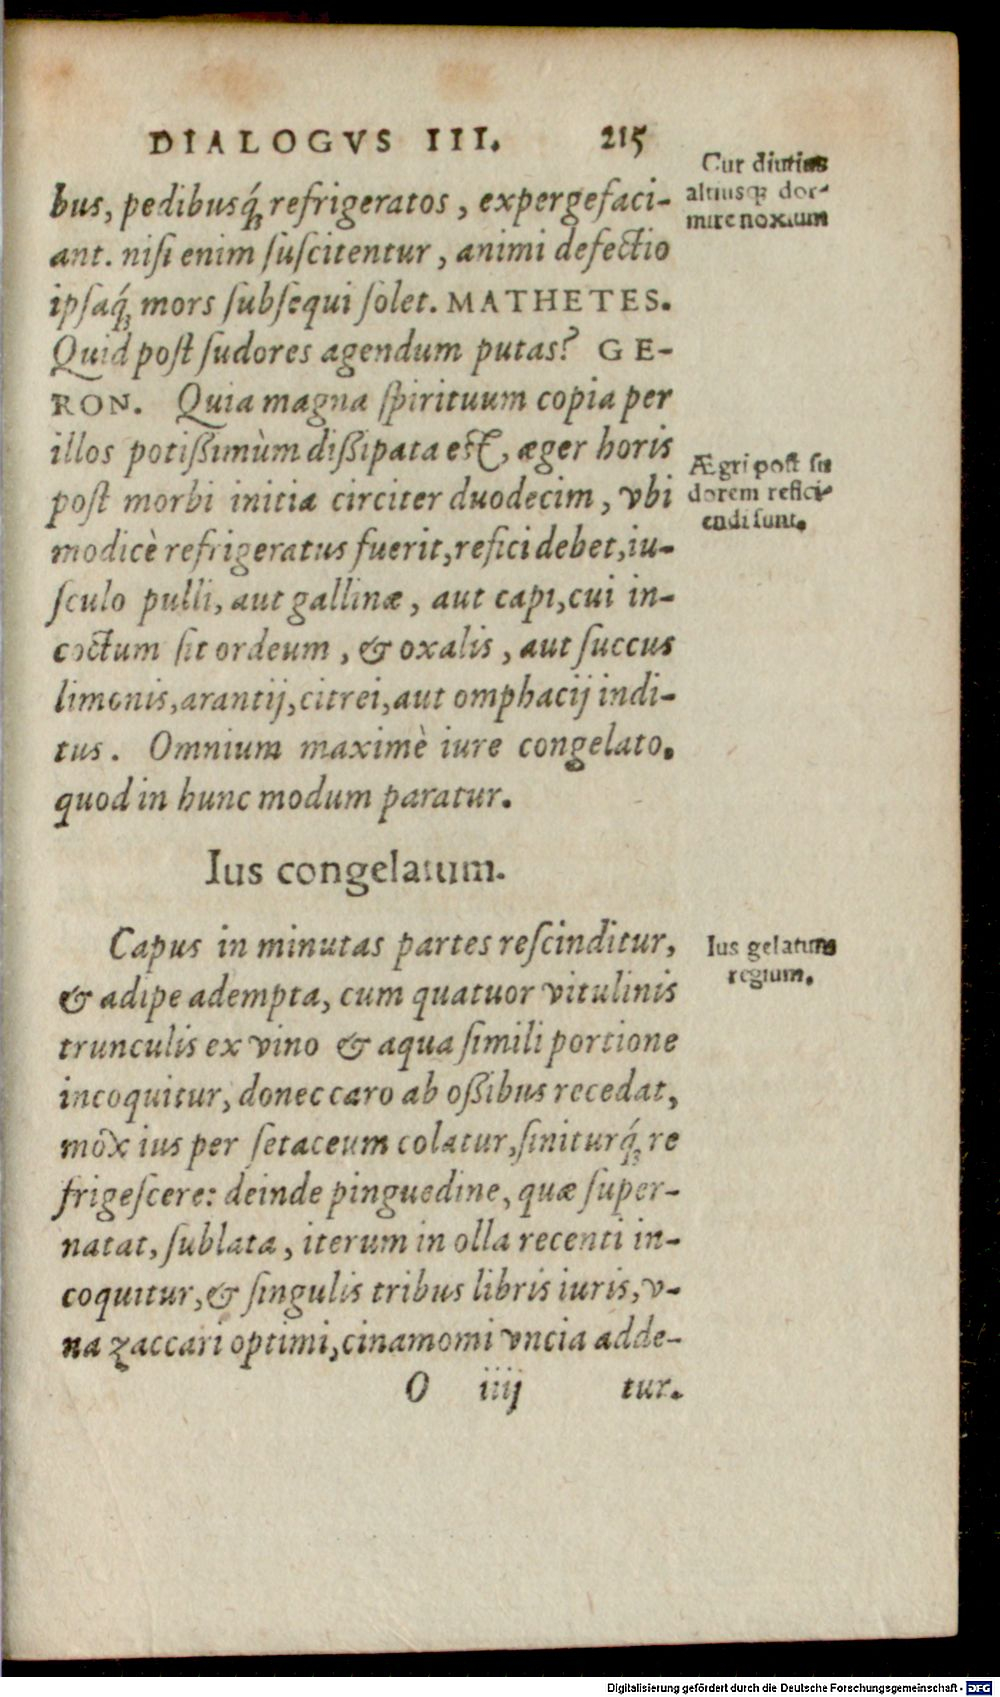 DIALOGVS III. 215
Cur diutius
altiusq́ꝫ dor-
mire noxium
bus, pedibusq́ꝫ refrigeratos, expergefaci-
ant. nisi enim ſuſcitentur, animi defectio
ipſaq́ꝫ mors ſubſequi ſolet. MATHETES.
Quid poſt ſudores agendum putas? GE-
RON. Quia magna ſpirituum copia per
illos potißimùm dißipata eſt, æger horis
poſt morbi initia circiter duodecim, vbi
modicè refrigeratus fuerit, refici debet, iu-
ſculo pulli, aut gallinæ, aut capi, cui in-
coctum ſit ordeum, & oxalis, aut ſuccus
limonis, arantij, citrei, aut omphacij indi-
tus. Omnium maximè iure congelato.
quod in hunc modum paratur.
Ægri poſt ſu
dorem refici-
endi ſunt.
Ius congelatum.
Capus in minutas partes reſcinditur,
& adipe adempta, cum quatuor vitulinis
trunculis ex vino & aqua ſimili portione
incoquitur, donec caro ab oßibus recedat,
mox ius per ſetaceum colatur, ſiniturq́ꝫ re
frigeſcere: deinde pinguedine, quæ ſuper-
natat, ſublata, iterum in olla recenti in-
coquitur, & ſingulis tribus libris iuris, v-
na zaccari optimi, cinamomi vncia adde-
Ius gelatum
regium.
O iiij tur.
Digitalisierung gefördert durch die Deutsche Forschungsgemeinschaft - DFG